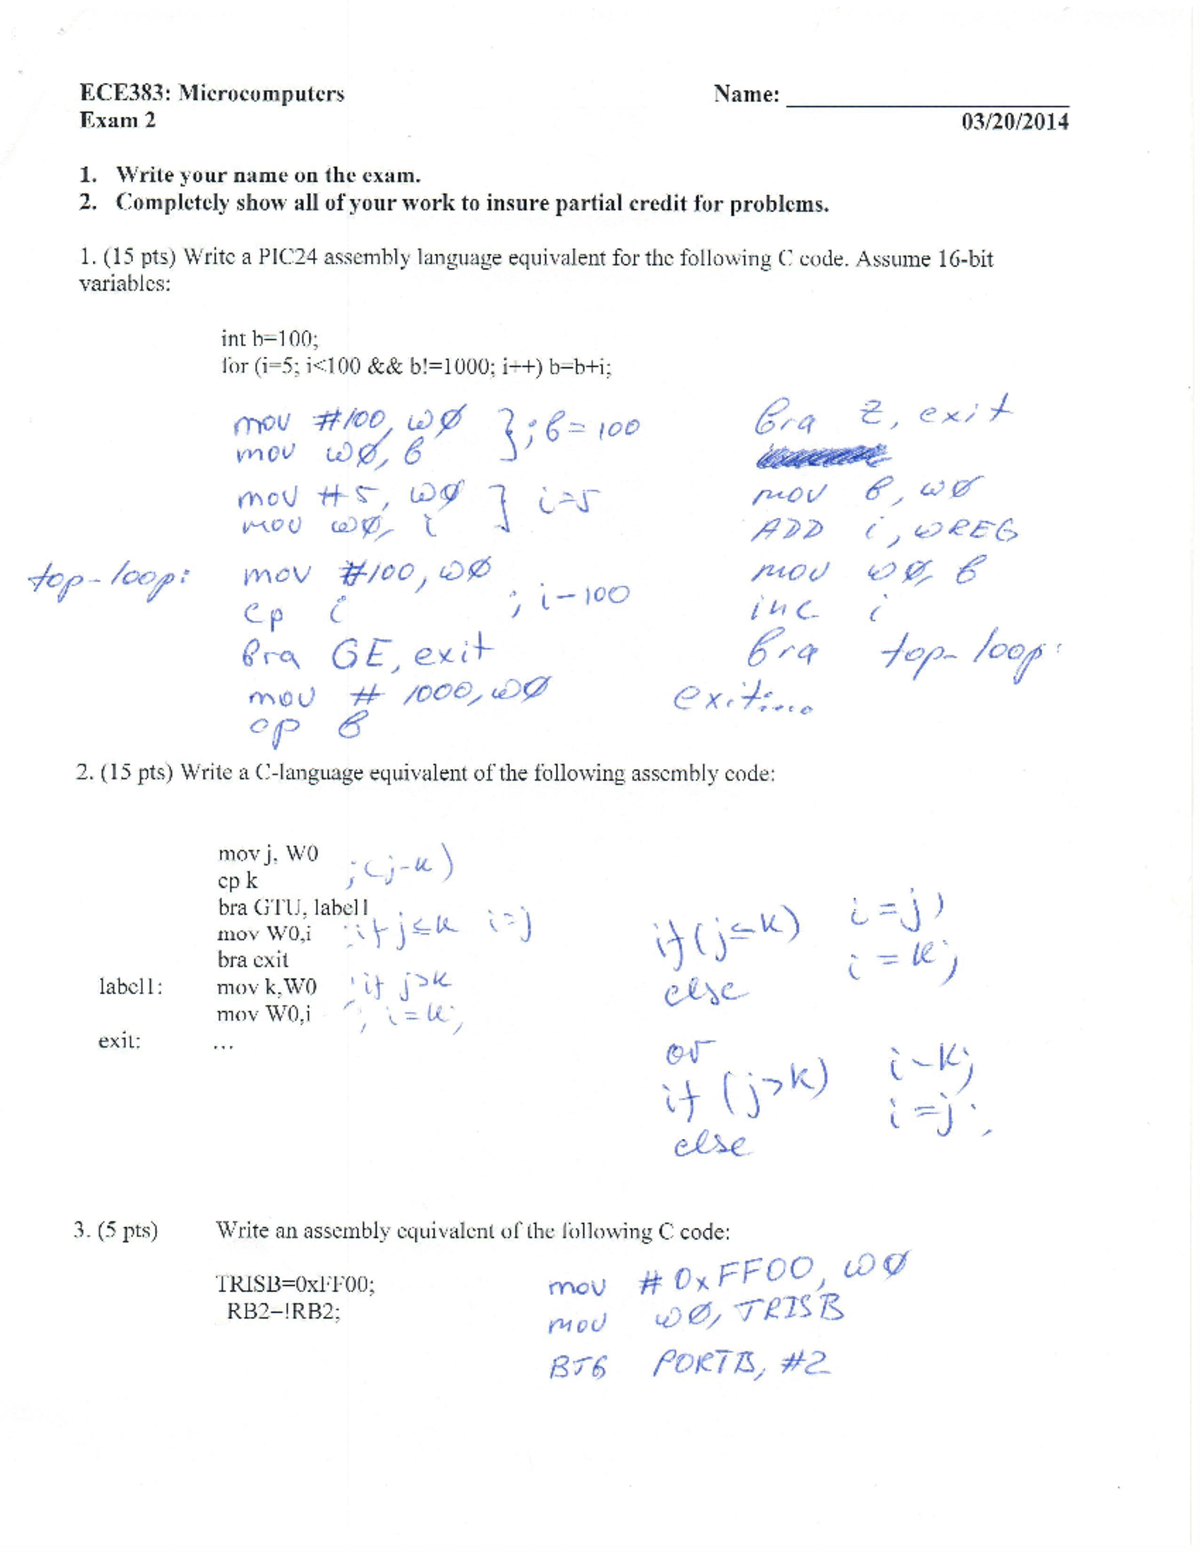 ECE383: Microcomputers Name: ____________________
Exam 2 03/20/2014
1. Write your name on the exam.
2. Completely show all of your work to insure partial credit for problems.
1. (15 pts) Write a PIC24 assembly language equivalent for the following C code. Assume 16-bit
variables:
int b=100;
for (i=5; i<100 && b!=1000; i++) b=b+i;
mov #100, w0 } ; b = 100
mov w0, b
mov #5, w0 } i=5
mov w0, i
top-loop: mov #100, w0
cp i ; i-100
bra GE, exit
mov # 1000, w0
cp b
bra Z, exit
mov b, w0
ADD i, WREG
mov w0, b
inc i
bra top-loop:
exit:....
2. (15 pts) Write a C-language equivalent of the following assembly code:
mov j, W0
cp k ; (j-k)
bra GTU, label1
mov W0,i ; if j≤k i=j
bra exit
label1: mov k,W0 ; if j>k
mov W0,i ; i=k;
exit: ...
if (j≤k) i=j;
else i=k;
or
if (j>k) i=k;
else i=j;
3. (5 pts) Write an assembly equivalent of the following C code:
TRISB=0xFF00;
RB2=!RB2;
mov #0xFF00, w0
mov w0, TRISB
BTG PORTB, #2